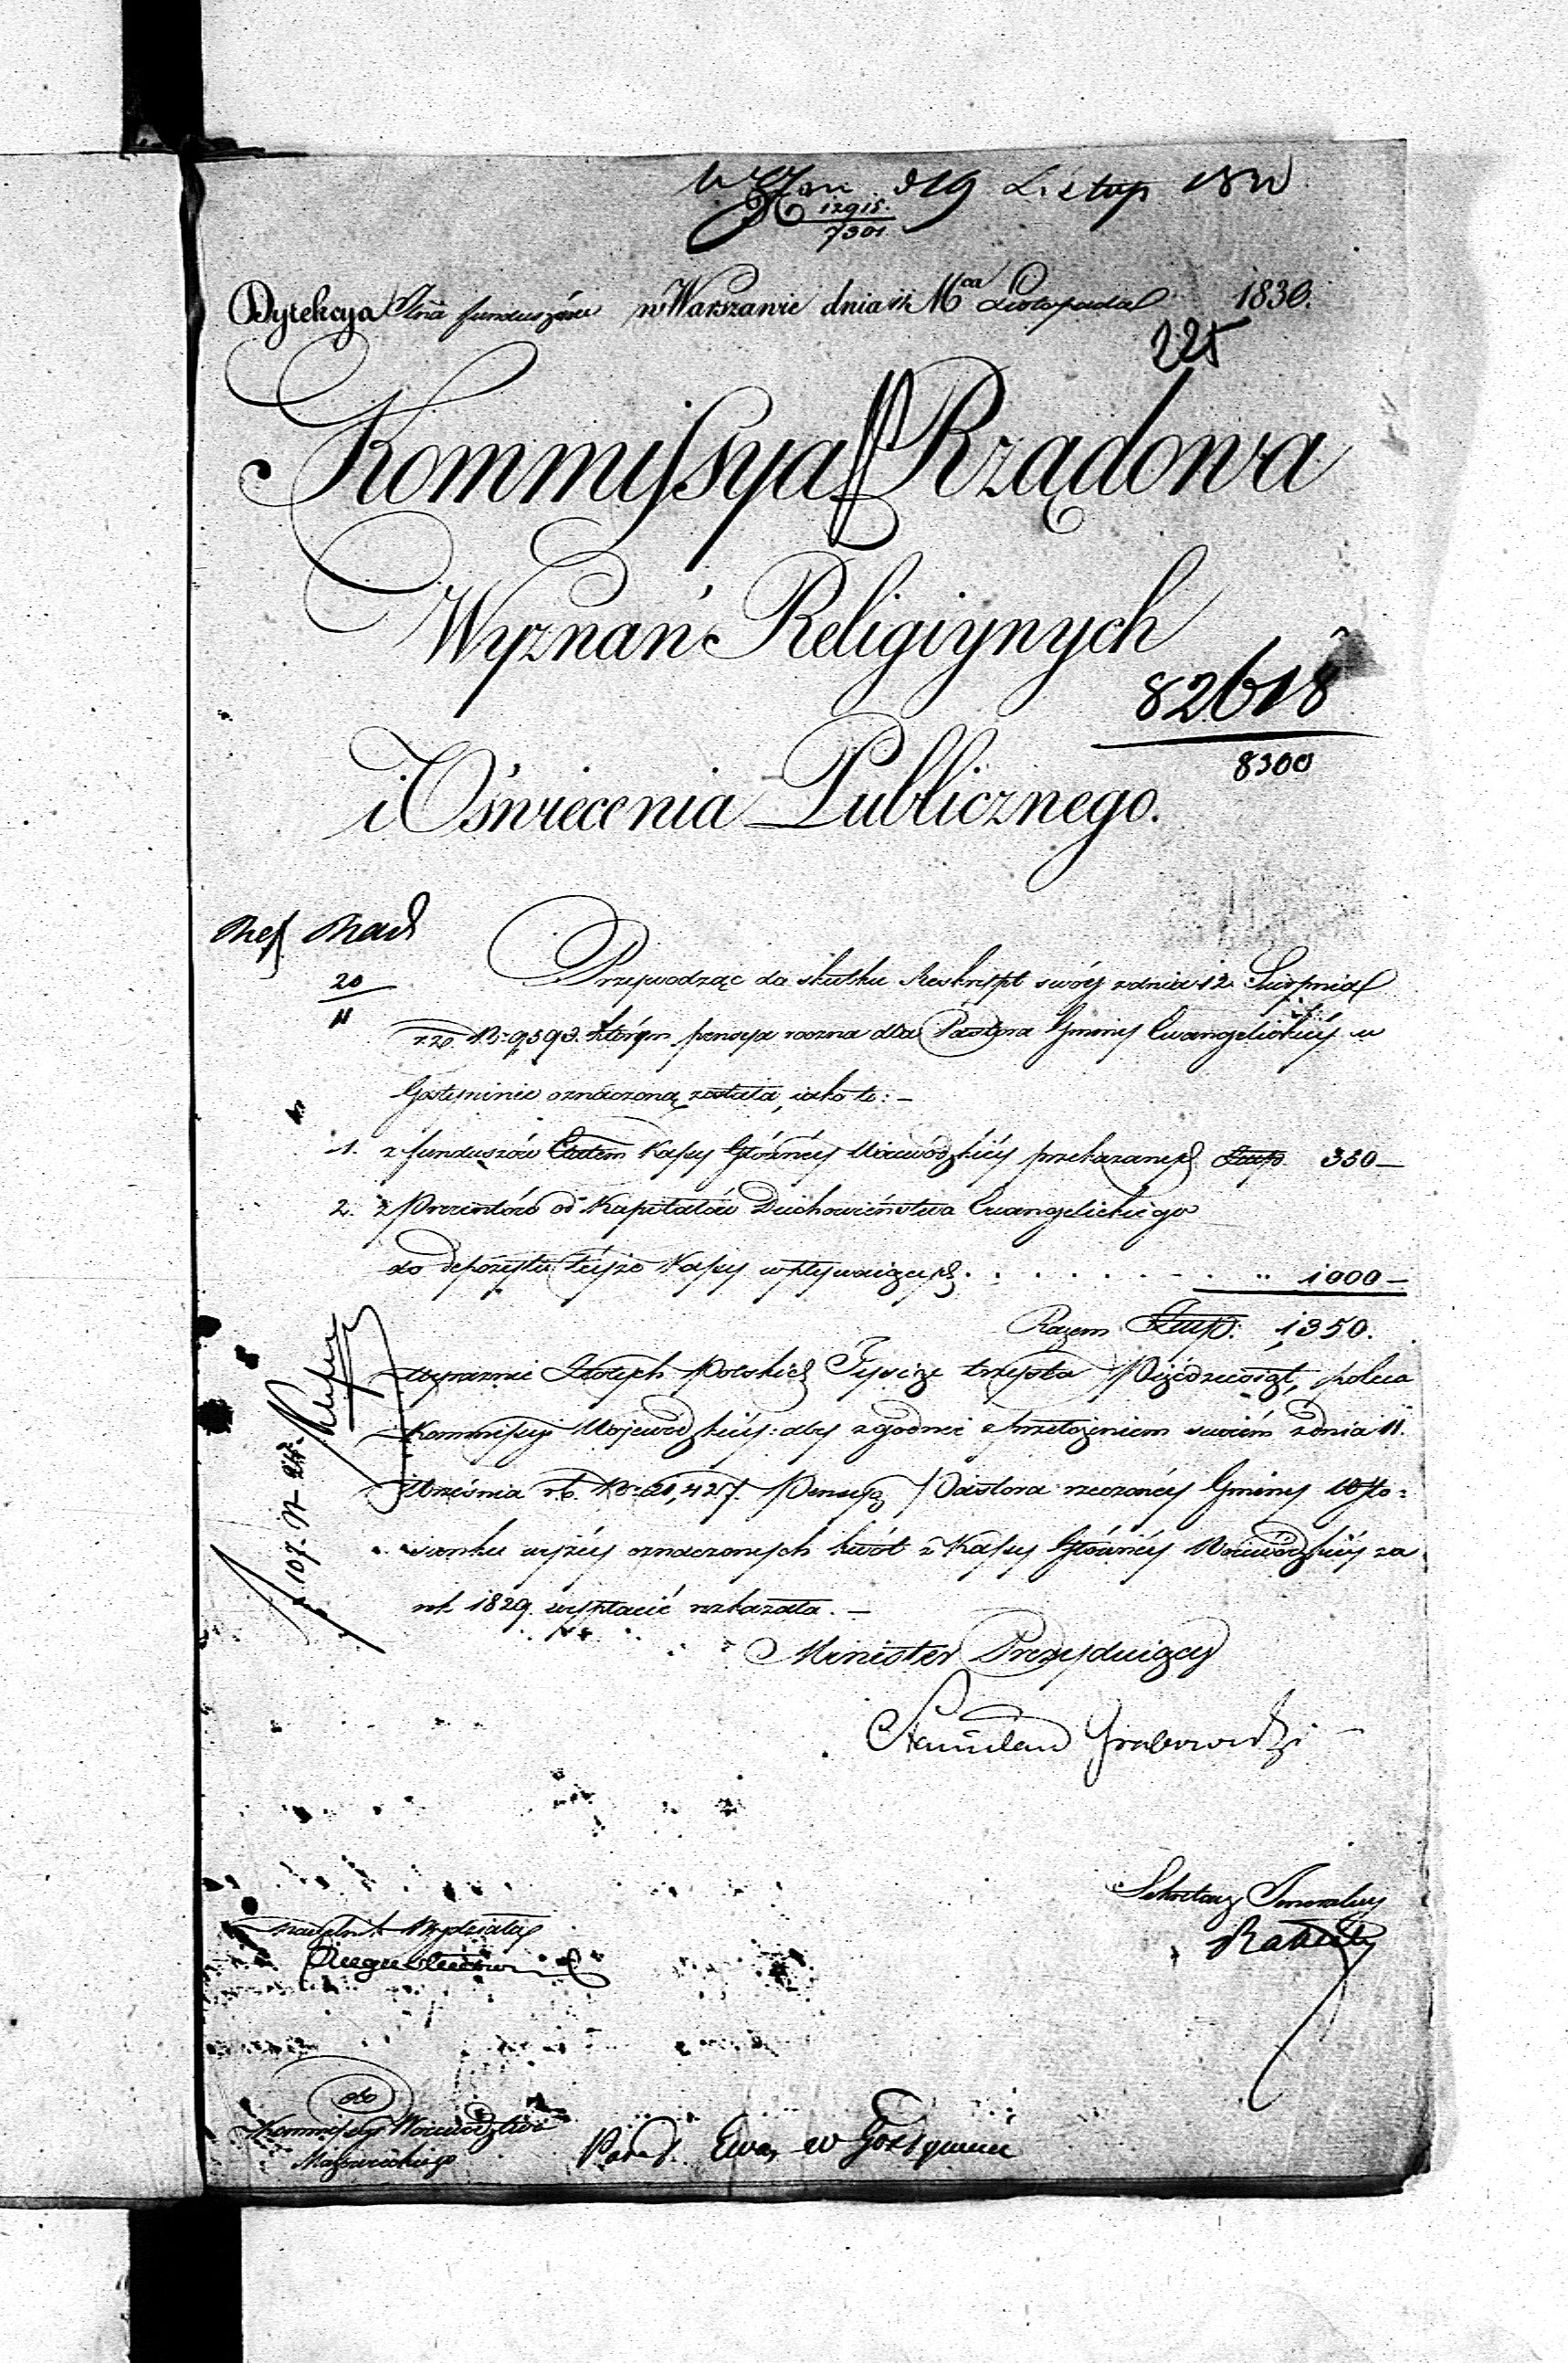 d 19 Listop 1830
12915.
7301
Dyrekcya Jlna funduszów w Warszawie dnia Mca Listopada 1830.
225
Kommissya Rządowa
Wyznań Religiynych
82618
8300
i Oświecenia Publicznego.
Ref Rach
20
11
Przywodząc do skutku Reskrypt swóy z dnia 12 Sierpnia
r. b. Nr 9593. którym pensya roczna dla Pastora Gminy Ewangelickiéy w
Gostyninie oznaczoną została, iako to: –
1. z funduszów Kassy Głównéy Woiewódzkiéy przekazanych Złłp. 350 –
2. z Procentów od Kapitałów Duchowieństwa Ewangelickiego
do depozytu téyże Kassy wpływaiących . . . . . . . . " 1000 –
Razem Złłp. 1350.
wyraźnie Złotych Polskich Tysiąc trzysta Pięćdziesiąt, poleca
Kommissyi Wojewódzkiéy: aby zgodnie z przełożeniem swoiém z dnia 11.
Września r. b. Nr 21,427. Pensyą Pastora rzeczonéy Gminy w sto=
sunku wyżéy oznaczonych kwot z Kassy Głównéy Woiewódzkiéy za
rok 1829 wypłacić rozkazała. –
107. N
Minister Prezyduiący
Stanisław Grabowski
Sekretarz Jeneralny
Naczelnik Wydziału
do
Kommissyi Woiewództwa
Mazowieckiego
Ewan w Gostyninie